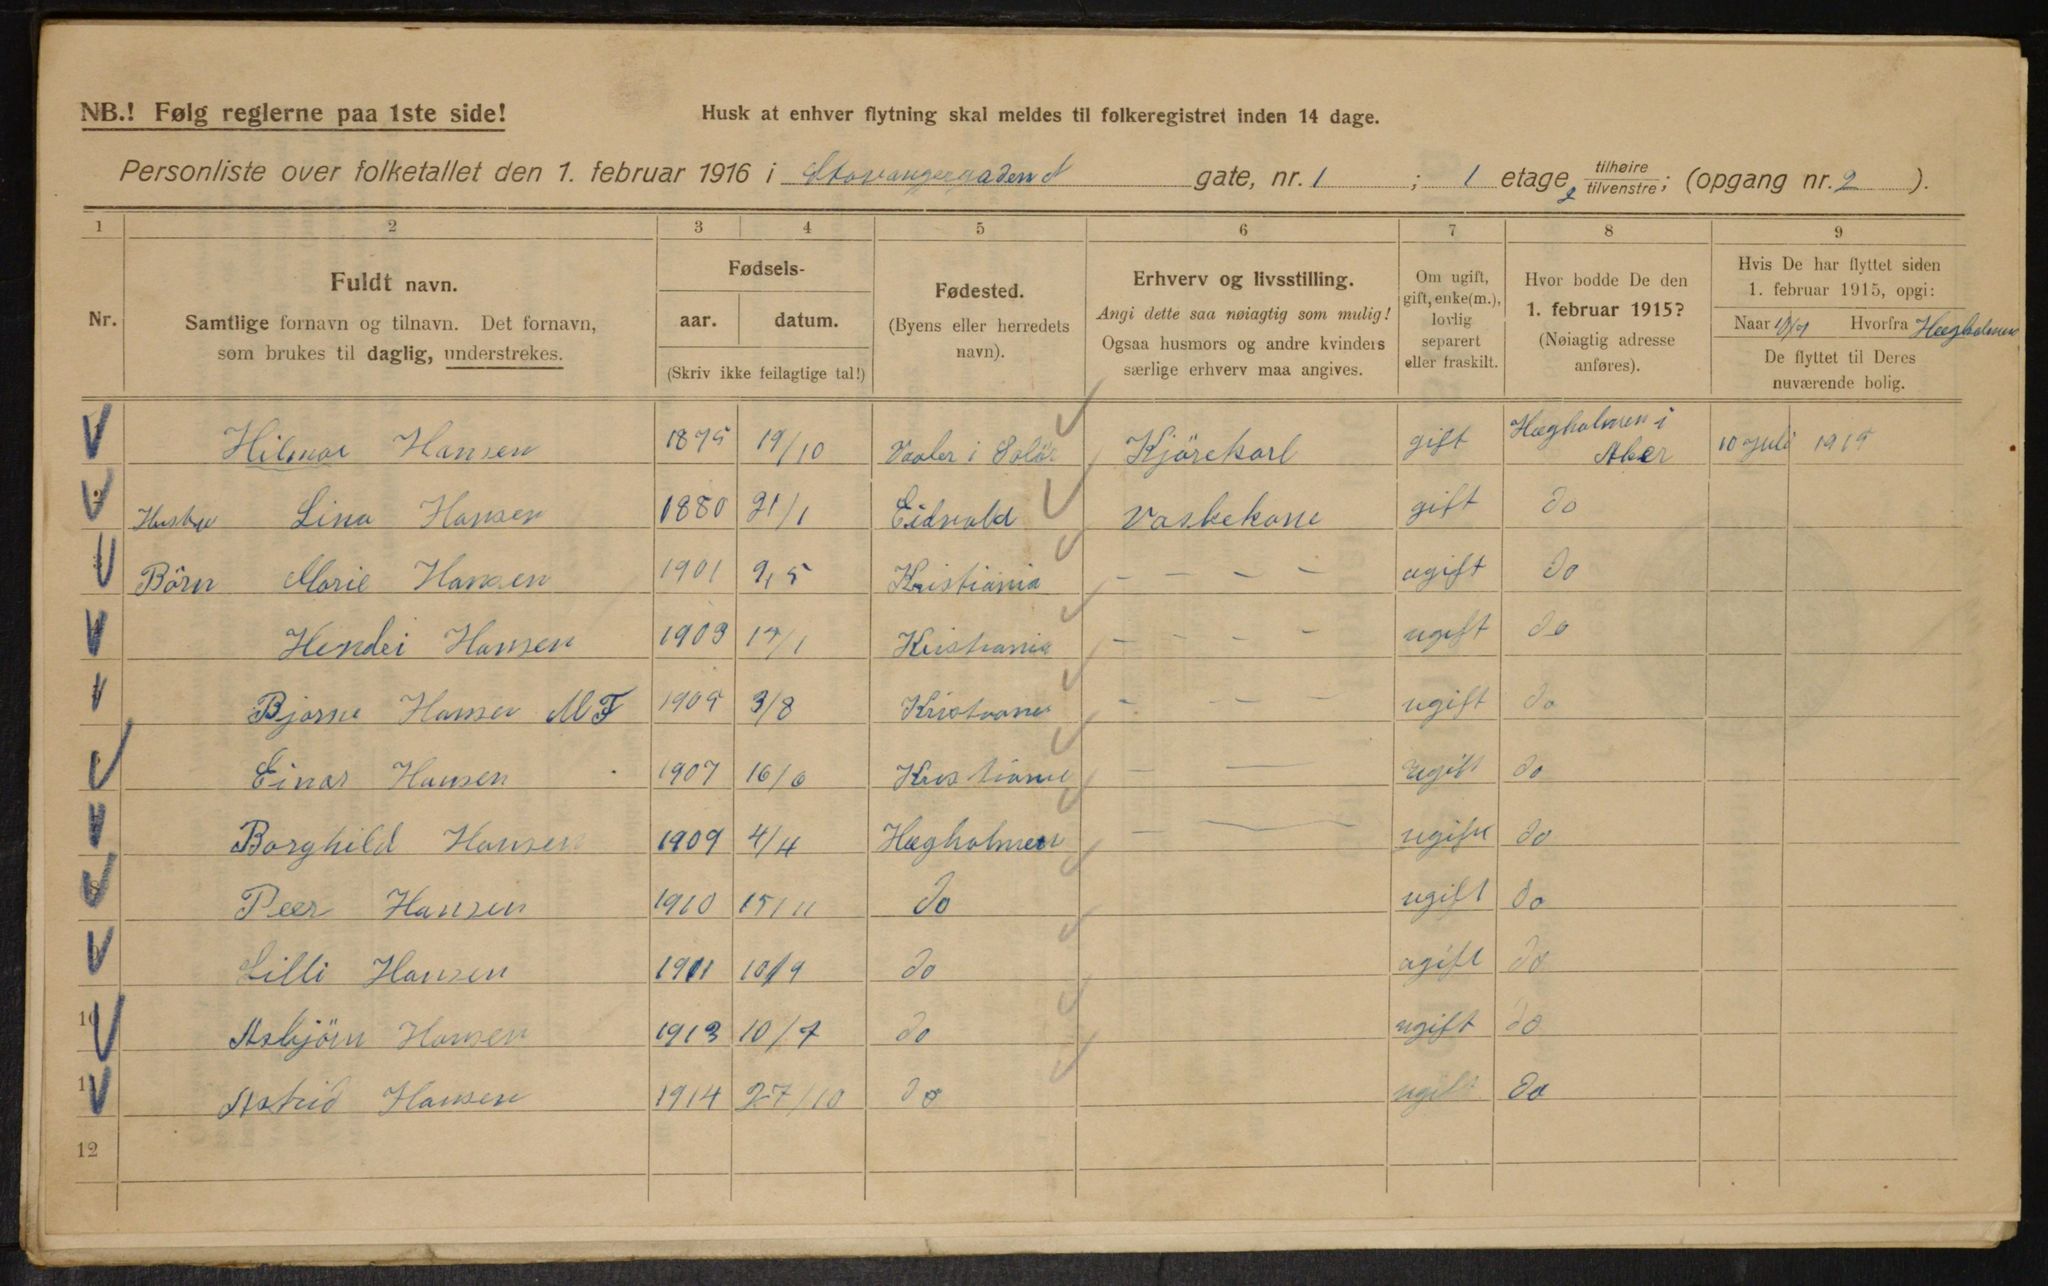 NB.! Følg reglerne paa 1ste side!
Husk at enhver flytning skal meldes til folkeregistret inden 14 dage.
Personliste over folketallet den 1. februar 1916 i Stavangergaden gate, nr. 1 ; 1 etage tilhøire/tilvenstre; (opgang nr. 2 ).
1 2 3 4 5 6 7 8 9
Nr.
Fuldt navn.
Samtlige fornavn og tilnavn. Det fornavn,
som brukes til daglig, understrekes.
Fødsels-
aar. datum.
(Skriv ikke feilagtige tal!)
Fødested.
(Byens eller herredets
navn).
Erhverv og livsstilling.
Angi dette saa nøiagtig som mulig!
Ogsaa husmors og andre kvinders
særlige erhverv maa angives.
Om ugift,
gift, enke(m.),
lovlig
separert
eller fraskilt.
Hvor bodde De den
1. februar 1915?
(Nøiagtig adresse
anføres).
Hvis De har flyttet siden
1. februar 1915, opgi:
Naar 10/7 Hvorfra Hægholmen
De flyttet til Deres
nuværende bolig.
Hilmar Hansen 1875 19/10 Vaaler i Solör Kjörekarl gift Hægholmen i Aker 10 Juli 1915
Hustru Lina Hansen 1880 21/1 Eidvold Vaskekone gift do
Börn Marie Hansen 1901 9,5 Kristiania - - - - ugift do
Hansen 1903 Kristiania - - - - ugift do
Bjarne Hansen M F 1905 3/8 Kristiania - - - ugift do
Einar Hansen 1907 16/6 Kristiania - - ugift do
Borghild Hansen 1909 4/4 Hægholmen - - ugift do
8 Peer Hansen 1910 15/11 do ugift do
9 Lilli Hansen 1911 10/9 do ugift do
10 Asbjörn Hansen 1913 10/7 do ugift do
11 Astrid Hansen 1914 27/10 do ugift do
12